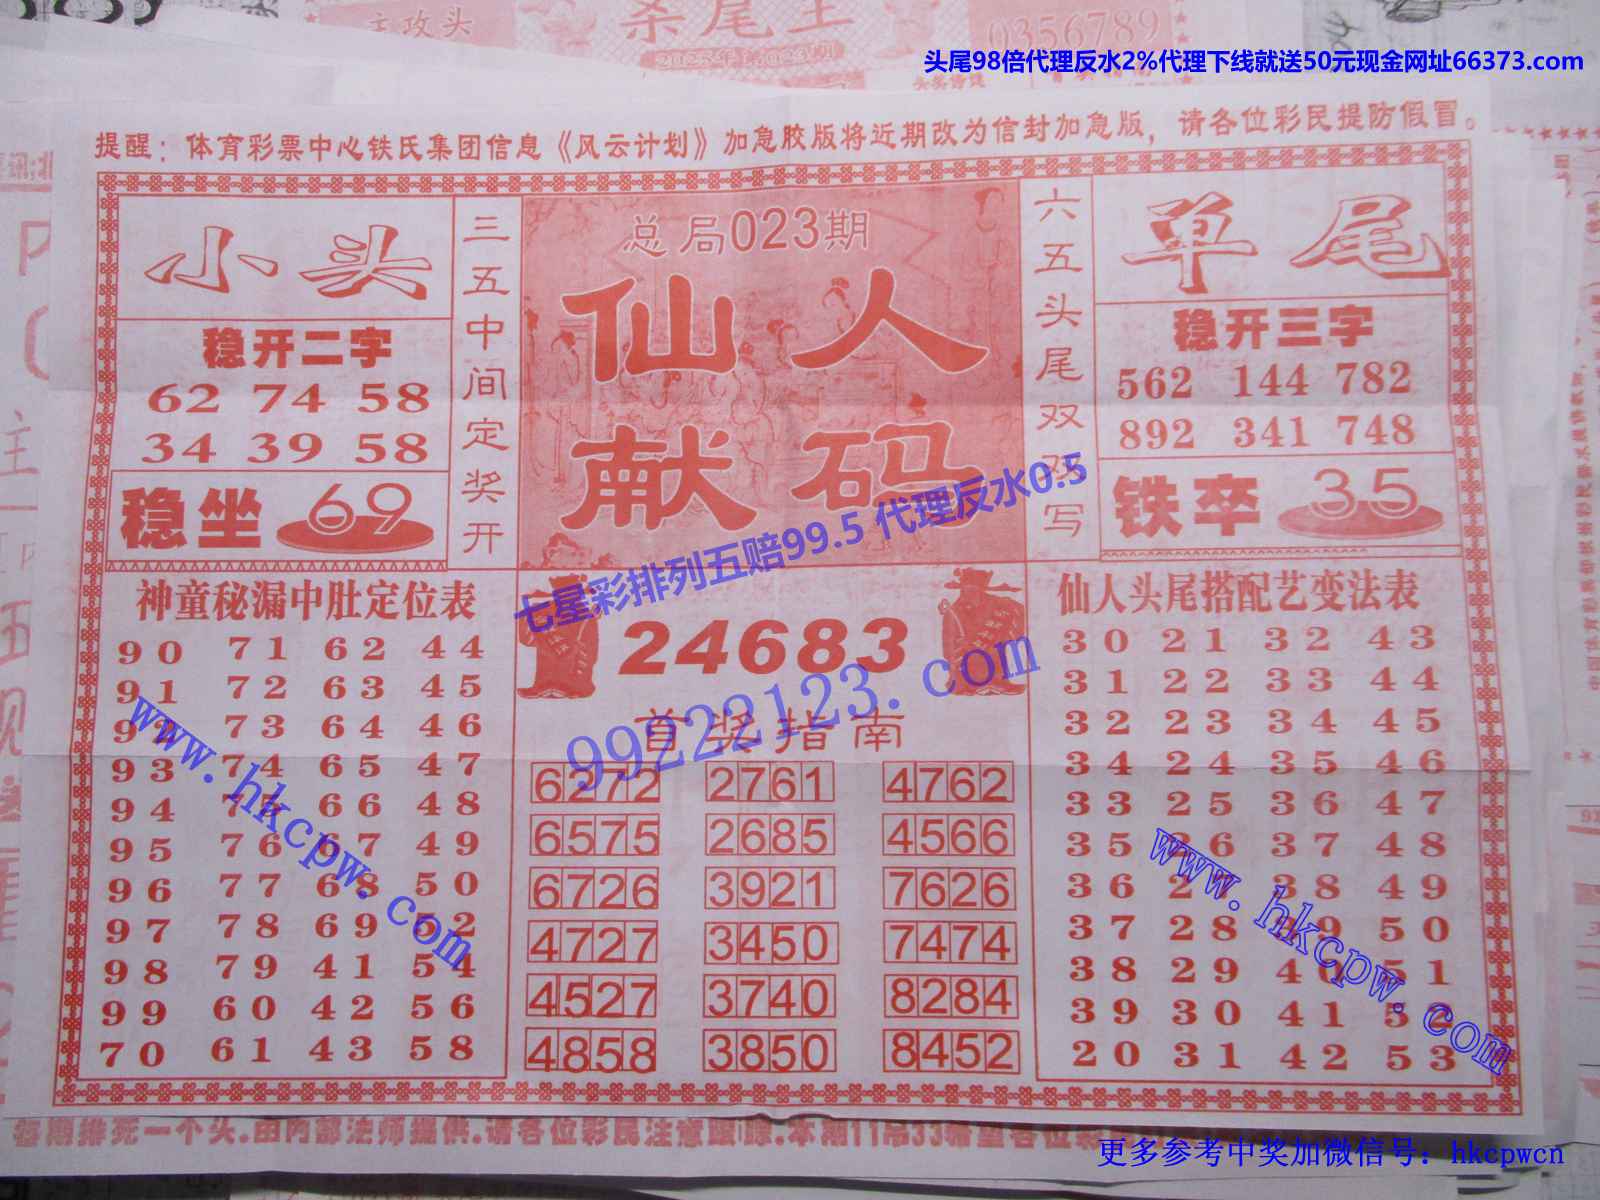 主攻头
杀尾王
0356789
头尾98倍代理反水2%代理下线就送50元现金网址66373.com
提醒：体育彩票中心铁氏集团信息《风云计划》加急胶版将近期改为信封加急版，请各位彩民提防假冒。
小头
稳开二字
62 74 58
34 39 58
稳坐 69
三五中间定奖开
总局023期
仙人
献码
六五头尾双双写
单尾
稳开三字
562 144 782
892 341 748
铁卒 35
七星彩排列五赔99.5 代理反水0.5
神童秘漏中肚定位表
90 71 62 44
91 72 63 45
92 73 64 46
93 74 65 47
94 75 66 48
95 76 67 49
96 77 68 50
97 78 69 52
98 79 41 54
99 60 42 56
70 61 43 58
www.hkcpw.com
24683
99222123.com
首奖指南
6272 2761 4762
6575 2685 4566
6726 3921 7626
4727 3450 7474
4527 3740 8284
4858 3850 8452
仙人头尾搭配艺变法表
30 21 32 43
31 22 33 44
32 23 34 45
34 24 35 46
33 25 36 47
35 26 37 48
36 27 38 49
37 28 39 50
38 29 40 51
39 30 41 52
20 31 42 53
www.hkcpw.com
短期排死一个头.由内部法师提供.请各位彩民注意跟踪.本期11吊33
更多参考中奖加微信号：hkcpwcn